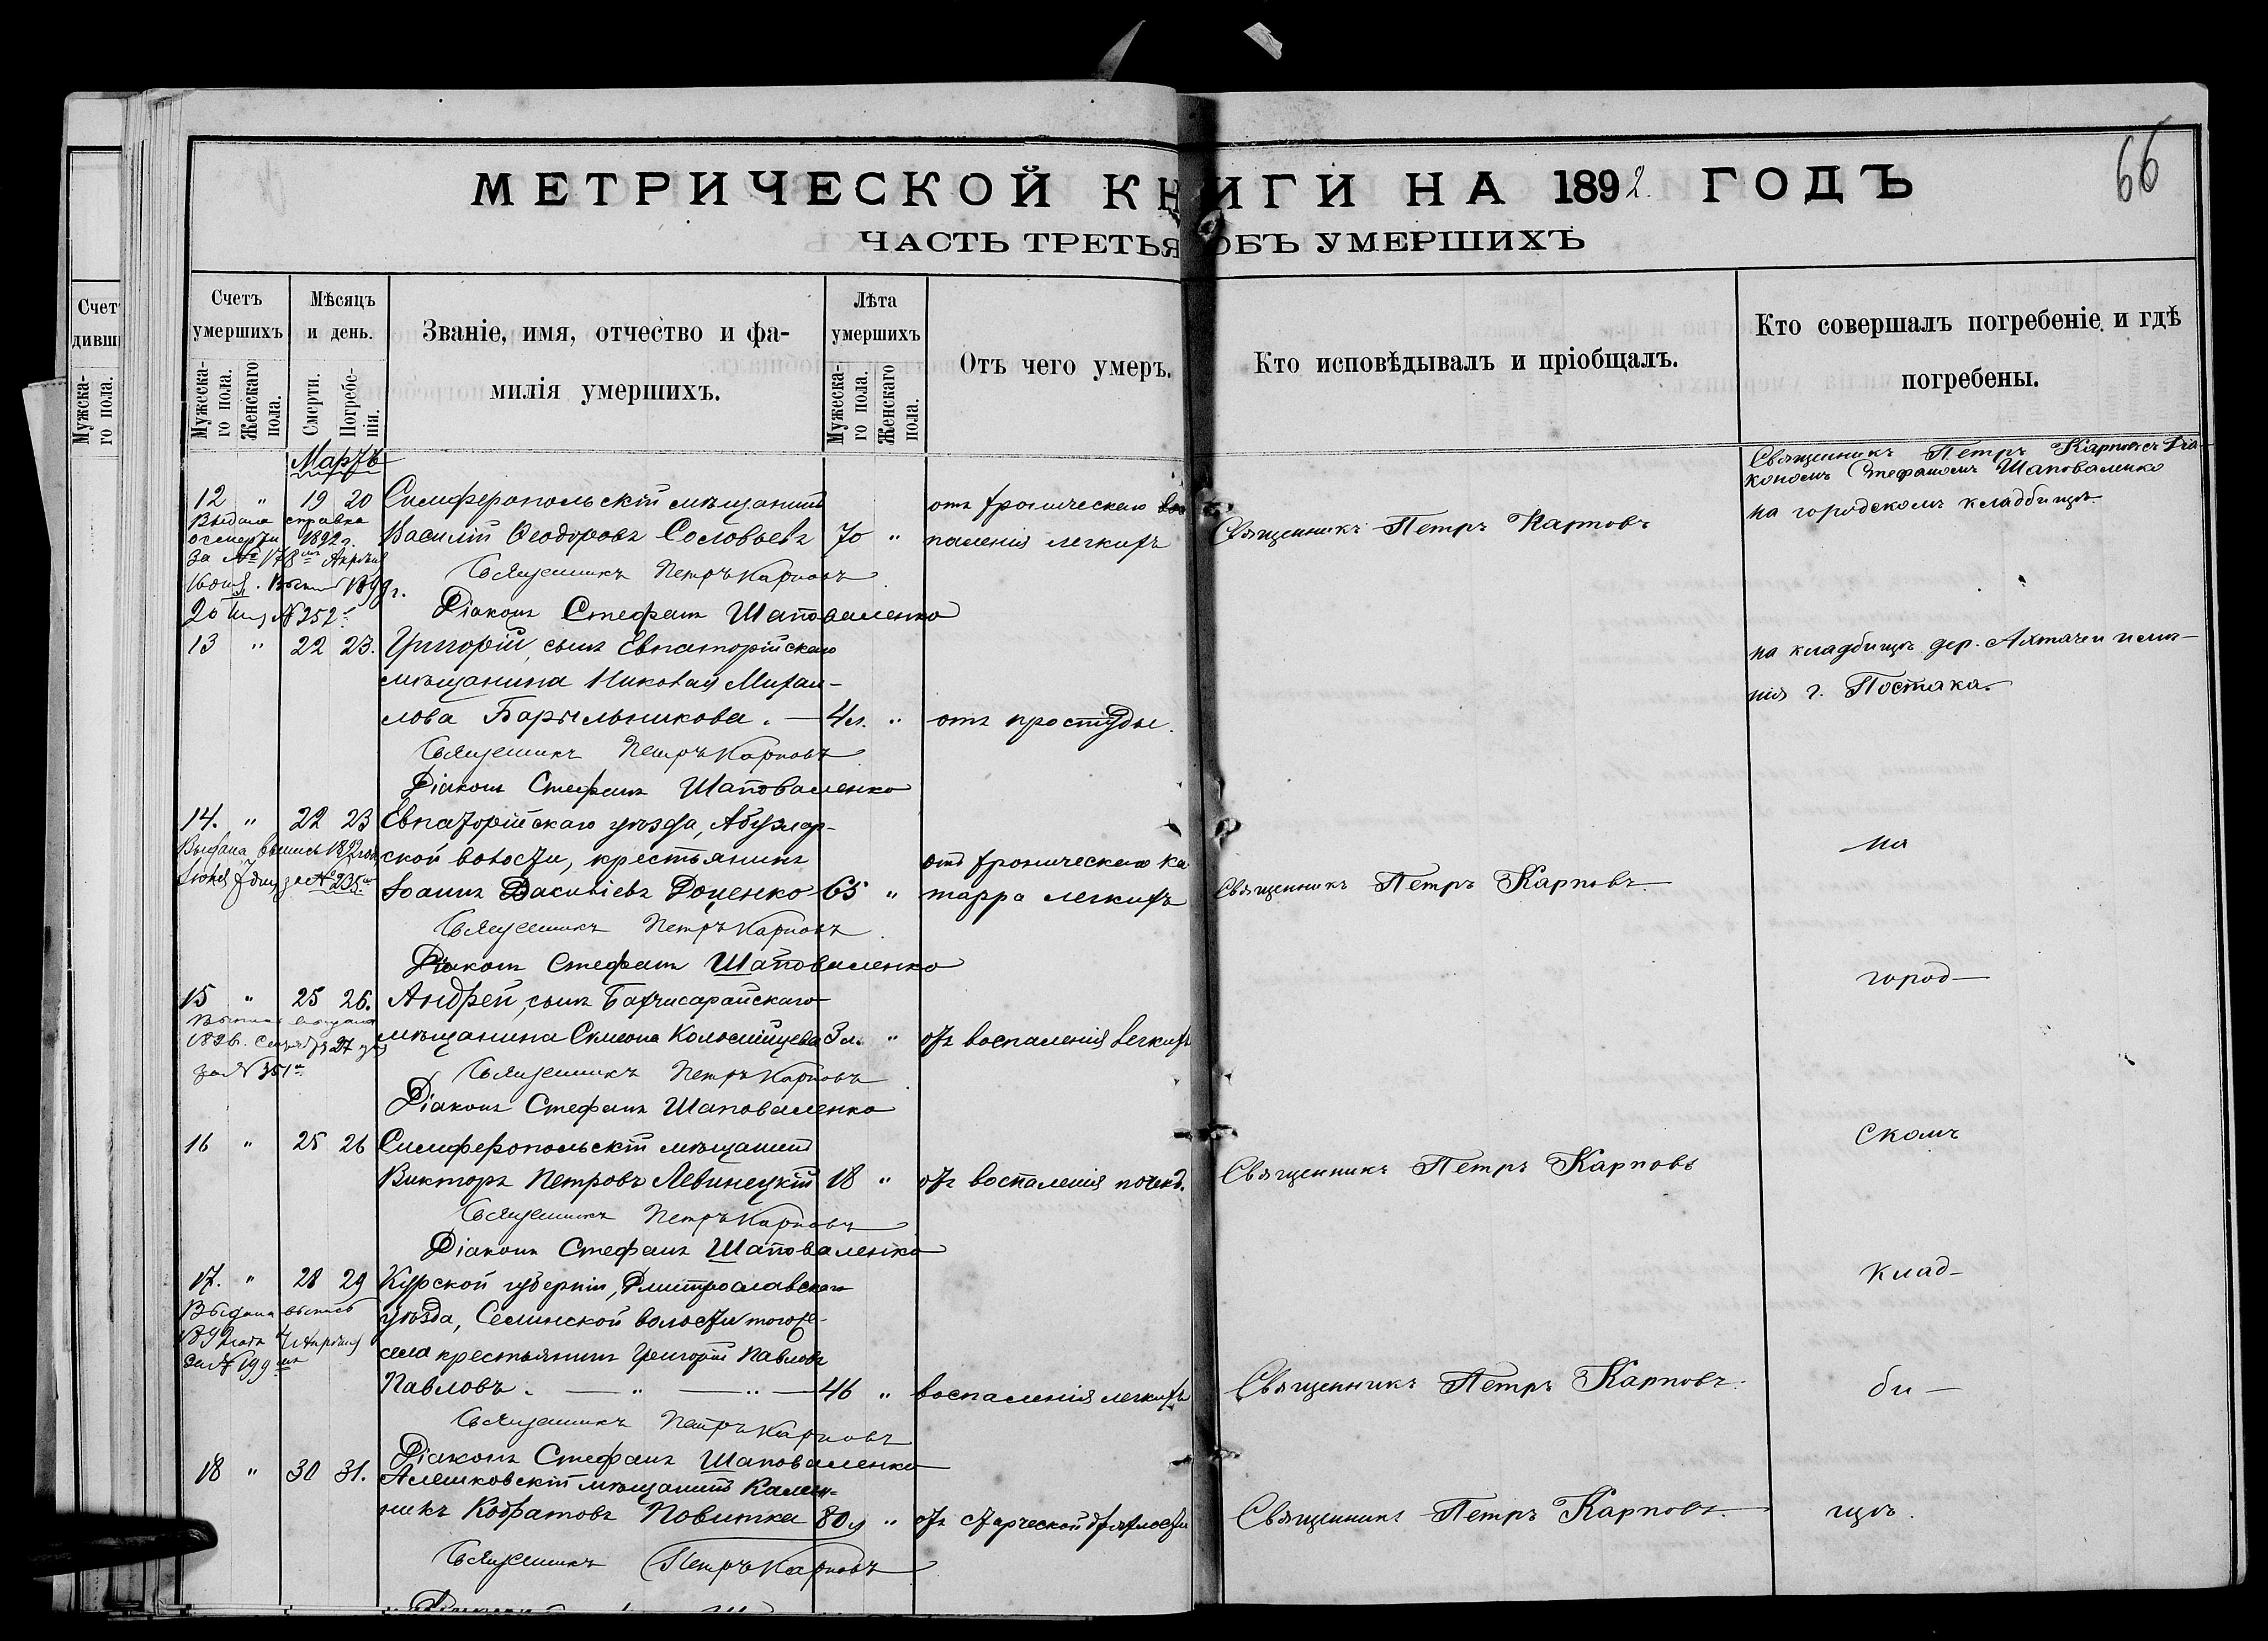 66
МЕТРИЧЕСКОЙ КНИГИ НА 1892 ГОДЪ
ЧАСТЬ ТРЕТЬЯ ОБЪ УМЕРШИХЪ
Счетъ умершихъ
Мѣсяцъ и день.
Званіе, имя, отчество и фа-
милія умершихъ.
Лѣта умершихъ
Отъ чего умеръ.
Кто исповѣдывалъ и пріобщалъ.
Кто совершалъ погребеніе и гдѣ
погребены.
Мужеска-
го пола.
Женскаго
пола.
Смерти.
Погребе-
нія.
Мужеска-
го пола.
Женскаго
пола.
Мартъ
Священникъ Петръ Карповъ съ діа-
кономъ Стефаномъ Шаповаленко
на городскомъ кладбищѣ
12 " 19 20 Симферопольскій мѣщанинъ
отъ хроническаго вос
Выдана справка
о смерти 1892 г.
Василій Ѳеодоровъ Соловьевъ 70 " паленія легкихъ
Священникъ Петръ Карповъ
за № 178 Апрѣля
Священникъ Петръ Карповъ
20 № 252
Діаконъ Стефанъ Шаповаленко
13 " 22 23. Григорій, сынъ Евпаторійскаго
мѣщанина Николая Михаи-
лова Барыльникова. — 4 л. " отъ простуды.
на кладбищѣ дер. Ахтачи имѣ-
нія г. Постака.
Священникъ Петръ Карповъ
Діаконъ Стефанъ Шаповаленко
14. " 22 23 Евпаторійскаго уѣзда, Абузлар-
ской волости, крестьянинъ
отъ хроническаго ка-
Іоаннъ Василіевъ Доценко 65 " тарра легкихъ
Священникъ Петръ Карповъ
на
Выдана выпись 1892 года
за № 235
Священникъ Петръ Карповъ
Діаконъ Стефанъ Шаповаленко
15 " 25 26. Андрей, сынъ Бахчисарайскаго
мѣщанина Симеона Коломійцева 3 м. " отъ воспаленія легкихъ
город-
27
за № 351
Священникъ Петръ Карповъ
Діаконъ Стефанъ Шаповаленко
16 " 25 26 Симферопольскій мѣщанинъ
Викторъ Петровъ Левинецкій 18 " отъ воспаленія почекъ.
Священникъ Петръ Карповъ
скомъ
Священникъ Петръ Карповъ
Діаконъ Стефанъ Шаповаленко
17. " 28 29 Курской губерніи, Дмитрославскаго
уѣзда, Селинской волости того же
села крестьянинъ Григорій Павловъ
Павловъ. — " — " — 46 " воспаленія легкихъ
Священникъ Петръ Карповъ
клад-
би-
Выдана выпись
Апрѣля
за № 199
Священникъ Петръ Карповъ
Діаконъ Стефанъ Шаповаленко
18 " 30 31. Алешковскій мѣщанинъ Калин-
никъ Кодратовъ Повитка 80 л " отъ старческой дряхлости
Священникъ Петръ Карповъ
щѣ.
Священникъ Петръ Карповъ
Счетъ
Мужска-
го пола.